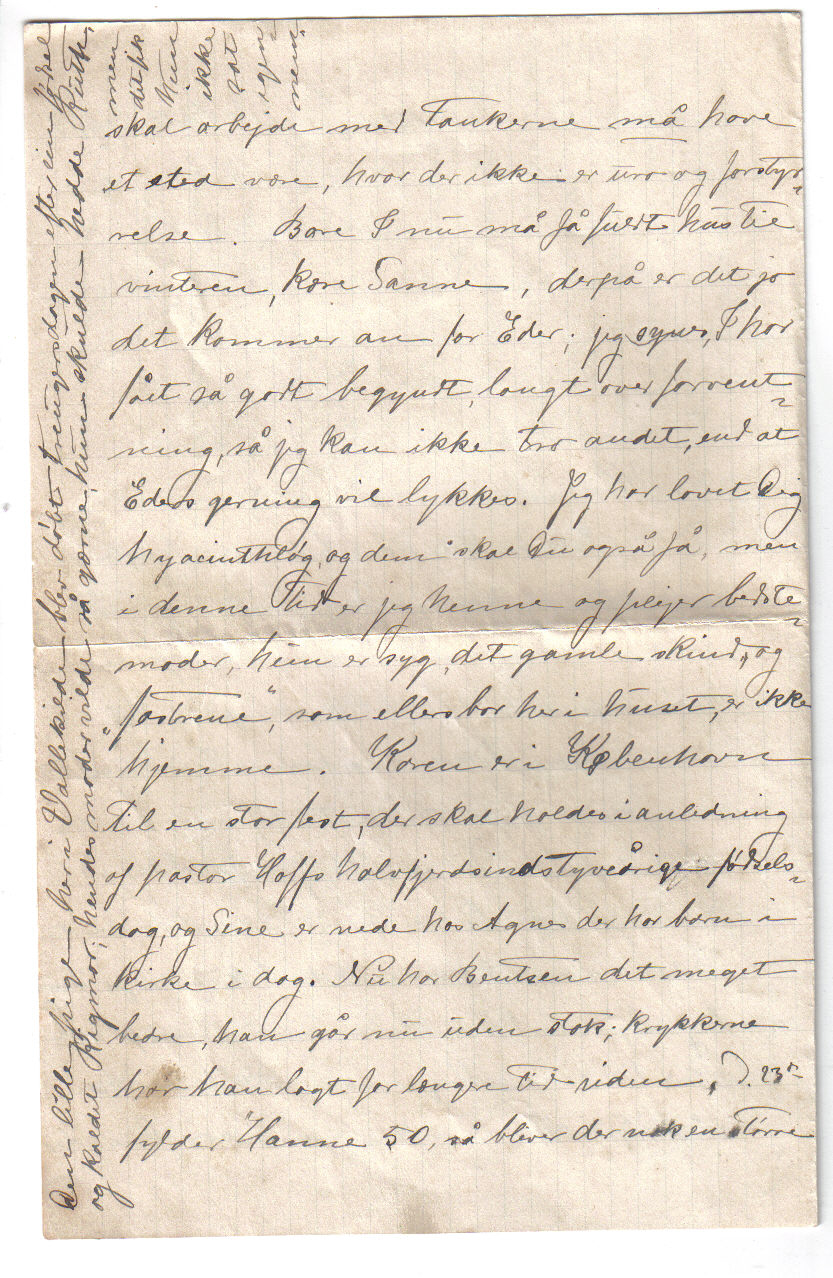 skal arbejde med Tankerne må have
et sted være, hvor der ikke er uro og forstyr-
relse. Bare I nu må få fuldt hus til
vinteren, kære Sanne, derpå er det jo
det kommer an for Eder; jeg synes, I har
fået så godt begyndt, langt over forvent-
ning, så jeg kan ikke tro andet, end at
Eders gerning vil lykkes. Jeg har lovet Dig
hyacinthløg, og dem skal Du også få, men
i denne Tid er jeg henne og plejer bedste-
moder, hun er syg, det gamle skind, og
"fastrene", som ellers bor her i huset, er ikke
hjemme. Karen er i København
til en stor fest, der skal holdes i anledning
af pastor Hoffs halvfjerdsindstyveårige fødsels-
dag, og Sine er nede hos Agnes der har barn i
kirke i dag. Nu har Bentsen det meget
bedre, han går nu uden stok; krykkerne
har han lagt for længere tid siden. D. 23de
fylder Hanne 50, så bliver der nok en større
Den lille pige her i Vallekilde blev døbt dagen efter sin fødsel
og kaldet Rigmor; hendes moder vilde så gærne, hun skulde hedde Ruth,
men
det fik
hun
ikke
sat
igen-
nem.